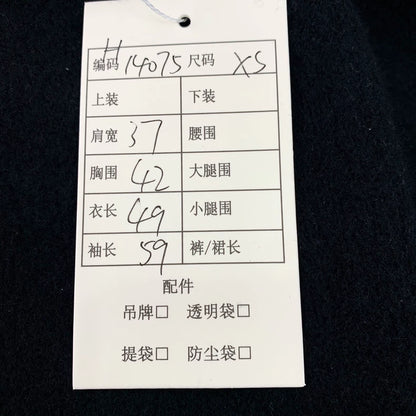 编码 H14075 尺码 XS
上装 下装
肩宽 37 腰围
胸围 42 大腿围
衣长 49 小腿围
袖长 59 裤/裙长
配件
吊牌□ 透明袋□
提袋□ 防尘袋□